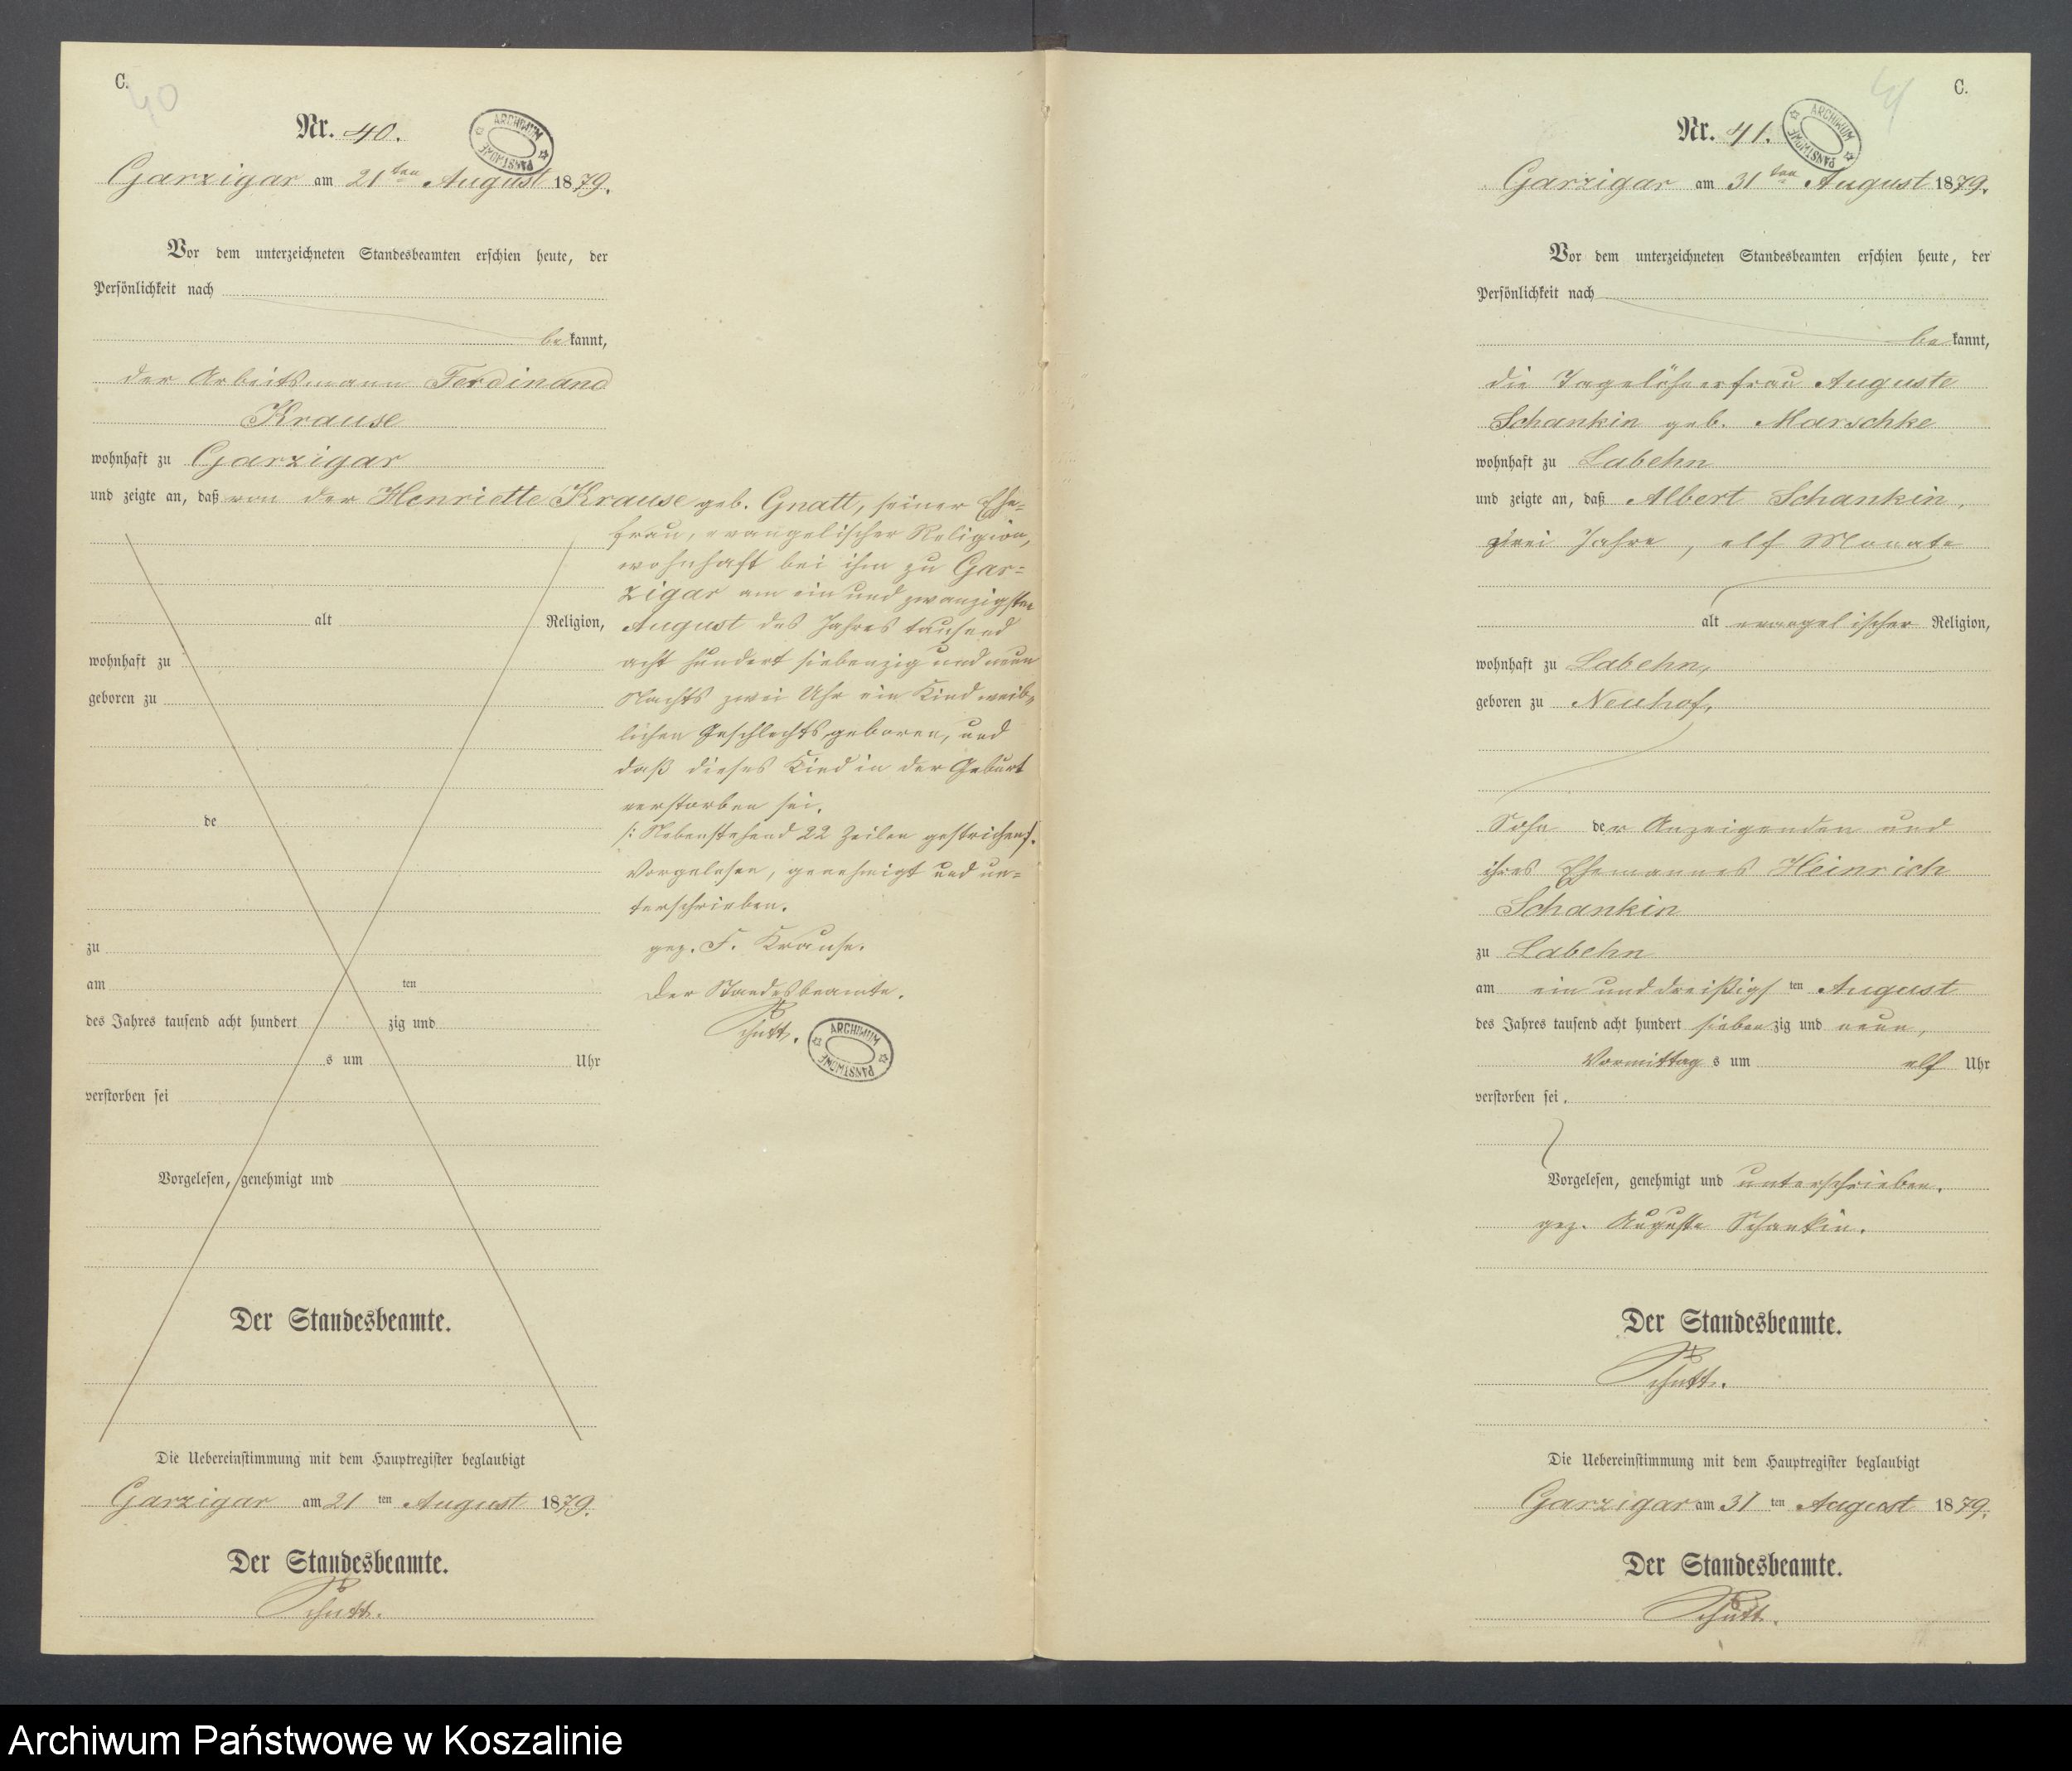 C.
40
Nr. 40.
ARCHIWUM PAŃSTWOWE
Garzigar am 21ten August 1879.
Vor dem unterzeichneten Standesbeamten erschien heute, der
Persönlichkeit nach
bekannt,
der Arbeitsmann Ferdinand
Krause
wohnhaft zu Garzigar
und zeigte an, daß von der Henriette Krause geb. Gnatt, seiner Ehe=
frau, evangelischer Religion,
wohnhaft bei ihm zu Gar=
zigar am ein und zwanzigsten
alt Religion, August des Jahres tausend
wohnhaft zu acht hundert siebenzig und neun
geboren zu Nachts zwei Uhr ein Kind weib=
lichen Geschlechts geboren, und
daß dieses Kind in der Geburt
verstorben sei.
de /: Nebenstehend 22 Zeilen gestrichen :/.
Vorgelesen, genehmigt und un=
terschrieben.
zu gez. F. Krause.
am ten Der Standesbeamte.
des Jahres tausend acht hundert zig und Schütt.
ARCHIWUM PAŃSTWOWE
s um Uhr
verstorben sei
Vorgelesen, genehmigt und
Der Standesbeamte.
Die Uebereinstimmung mit dem Hauptregister beglaubigt
Garzigar am 21 ten August 1879.
Der Standesbeamte.
Schütt.
C.
41
Nr. 41.
ARCHIWUM PAŃSTWOWE
Garzigar am 31ten August 1879.
Vor dem unterzeichneten Standesbeamten erschien heute, der
Persönlichkeit nach
bekannt,
die Tagelöhnerfrau Auguste
Schankin geb. Marschke
wohnhaft zu Labehn
und zeigte an, daß Albert Schankin,
Jahre, elf Monate
alt evangelischer Religion,
wohnhaft zu Labehn,
geboren zu Neuhof,
Sohn der Anzeigenden und
ihres Ehemannes Heinrich
Schankin
zu Labehn
am ein und dreißigsten August
des Jahres tausend acht hundert siebenzig und neun,
Vormittags um elf Uhr
verstorben sei.
Vorgelesen, genehmigt und unterschrieben.
gez. Auguste Schankin.
Der Standesbeamte.
Schütt.
Die Uebereinstimmung mit dem Hauptregister beglaubigt
Garzigar am 31 ten August 1879.
Der Standesbeamte.
Schütt.
Archiwum Państwowe w Koszalinie